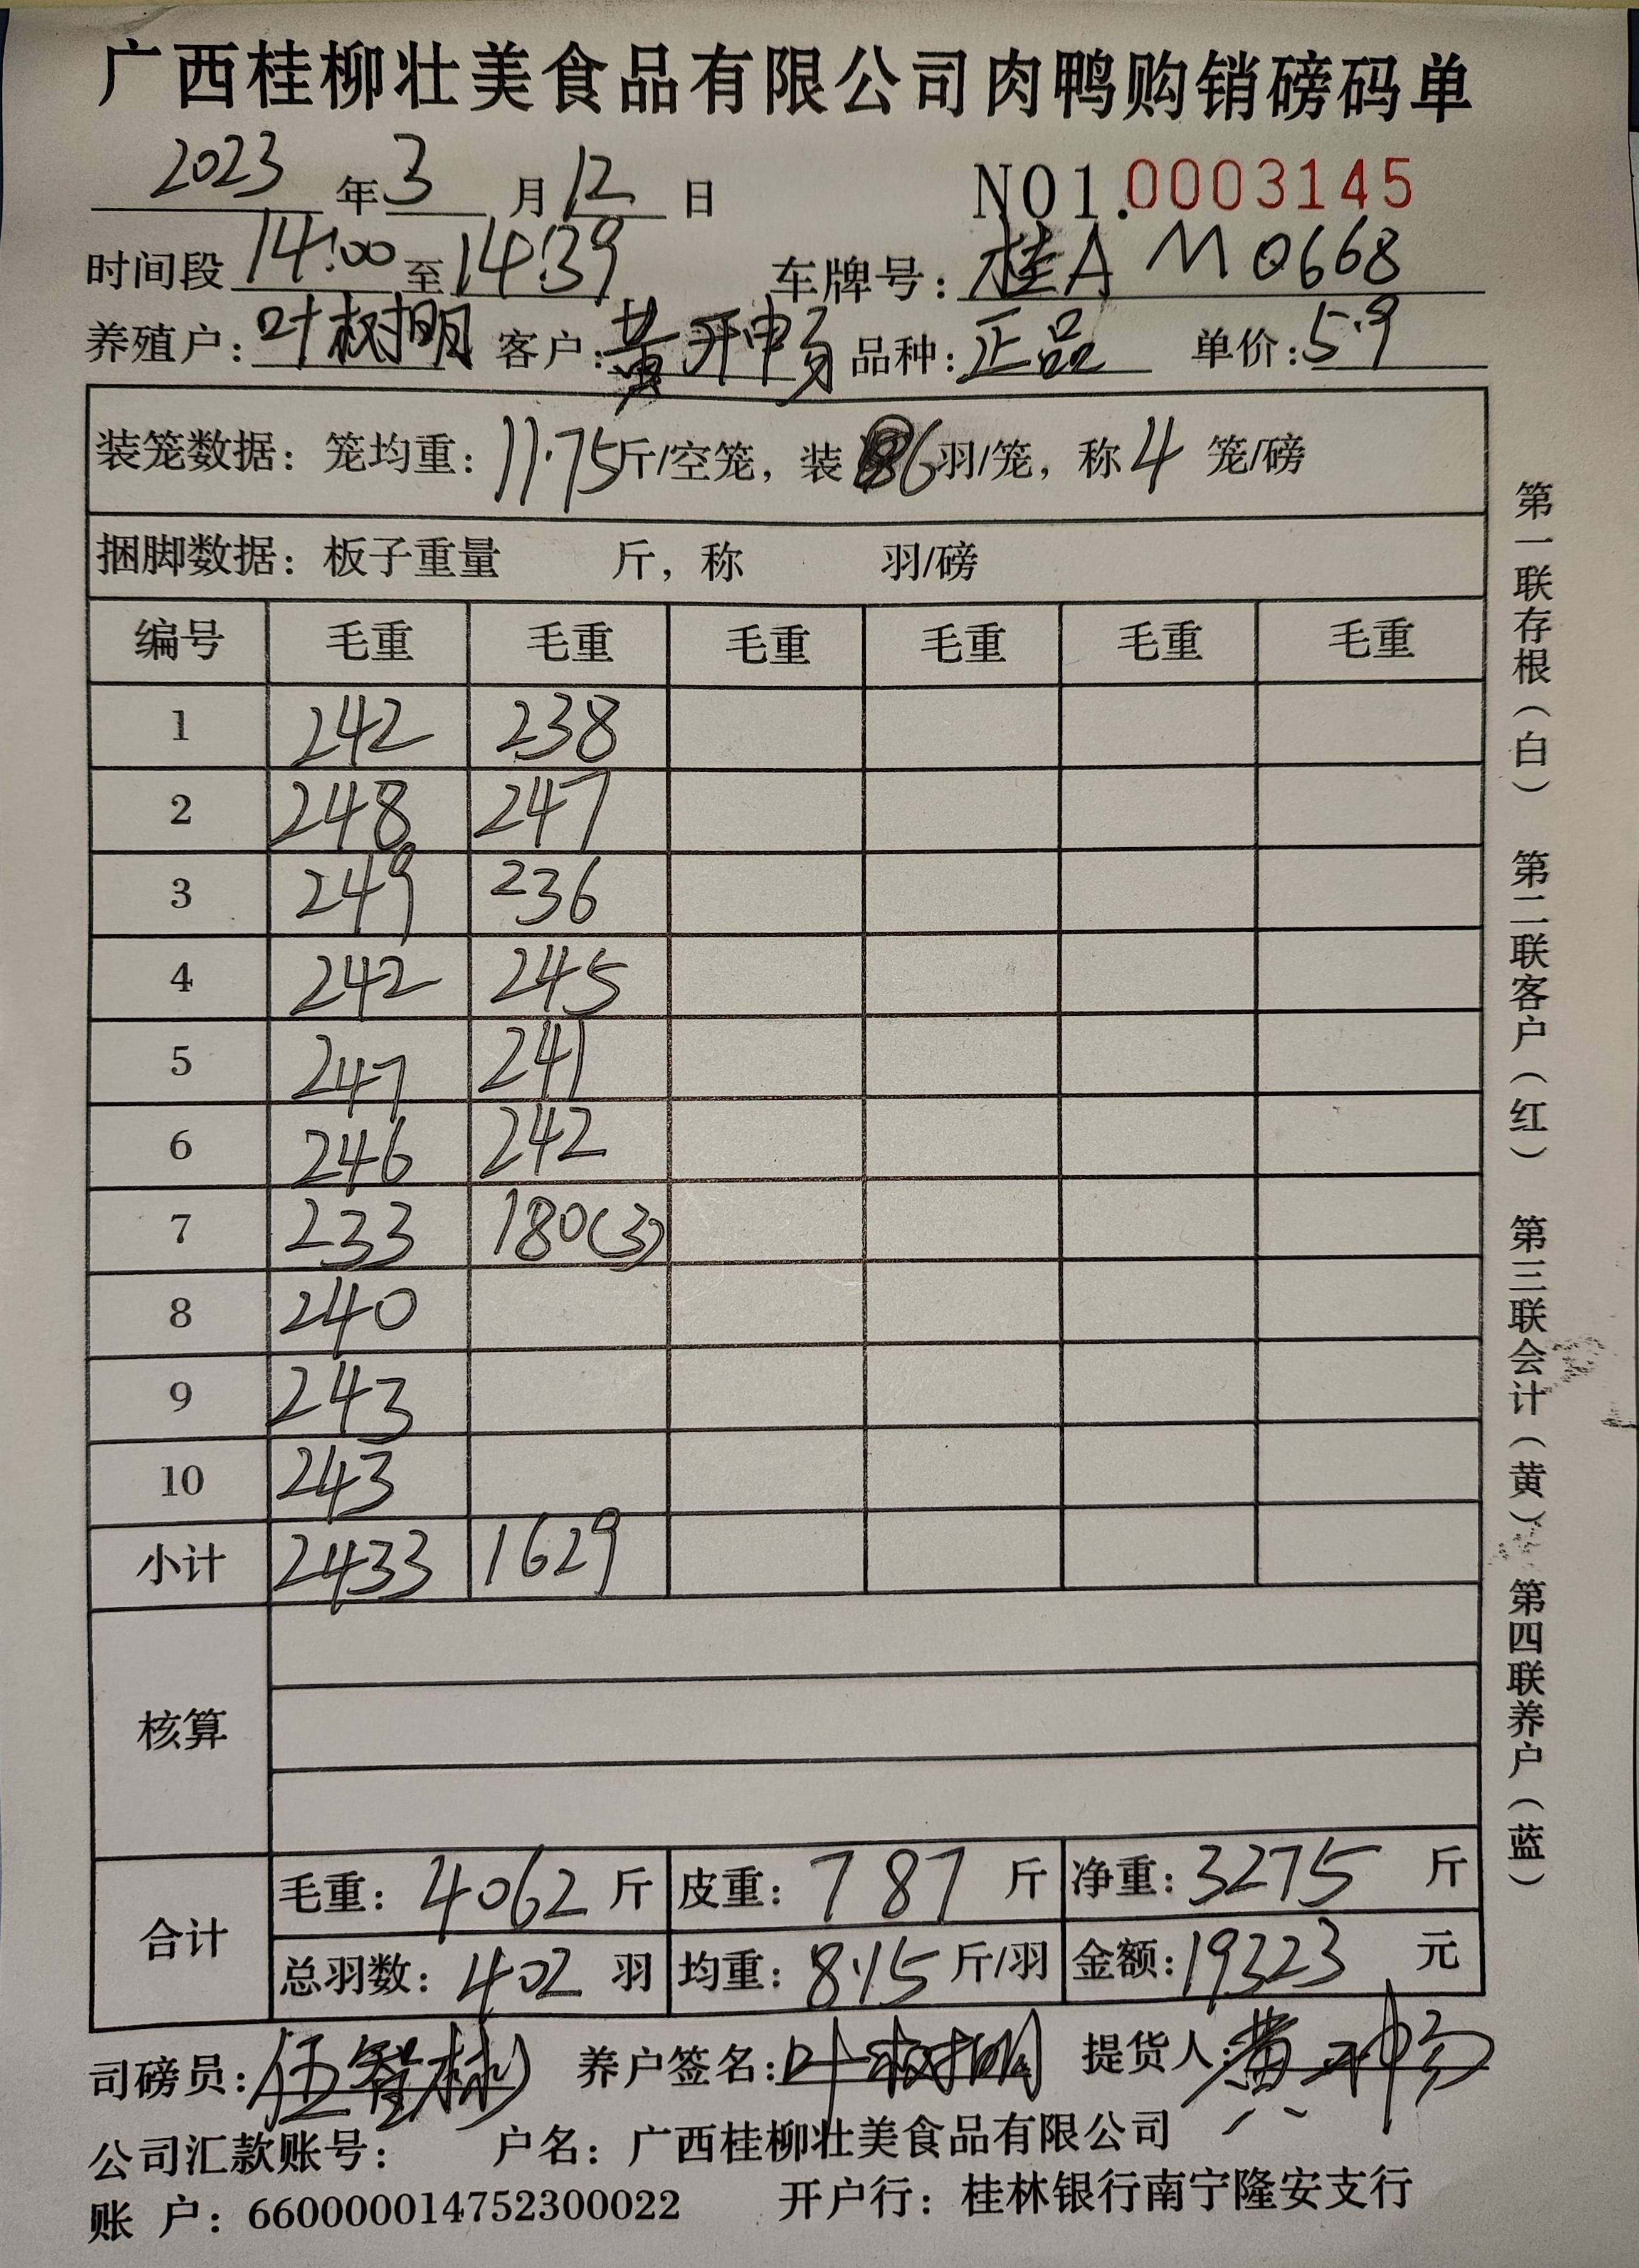 广西桂柳壮美食品有限公司肉鸭购销磅码单
2023 年 3 月 12 日 NO1.0003145
时间段 14:00 至 14:39 车牌号: 桂A M0668
养殖户: 叶树明 客户: 黄开申 品种: 正品 单价: 5.9
装笼数据: 笼均重: 11.75斤/空笼, 装 6羽/笼, 称 4 笼/磅
捆脚数据: 板子重量 斤, 称 羽/磅
编号 毛重 毛重 毛重 毛重 毛重 毛重
1 242 238
2 248 247
3 249 236
4 242 245
5 247 241
6 246 242
7 233 180(3)
8 240
9 243
10 243
小计 2433 1629
核算
合计
毛重: 4062 斤 皮重: 787 斤 净重: 3275 斤
总羽数: 402 羽 均重: 8.15 斤/羽 金额: 19323 元
司磅员: 伍智 养户签名: 叶树明 提货人: 黄
公司汇款账号: 户名: 广西桂柳壮美食品有限公司
账 户: 660000014752300022 开户行: 桂林银行南宁隆安支行
第一联存根(白) 第二联客户(红) 第三联会计(黄) 第四联养户(蓝)